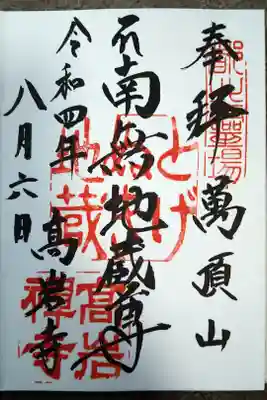 奉拝 萬頂山
南無地蔵尊
高岩寺
令和四年
八月六日
とげ
地蔵
高岩
禅寺